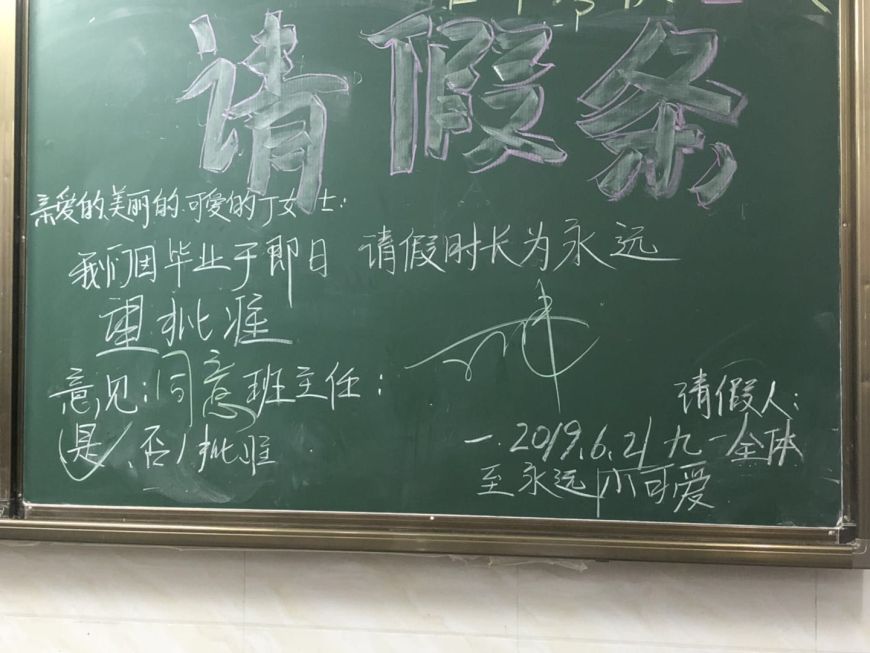 请假条
亲爱的、美丽的、可爱的丁女士:
我们因毕业于即日 请假时长为永远
望批准
意见:同意班主任:
(是、否)批准
请假人:
一.2019.6.21 九一全体
至永远 小可爱